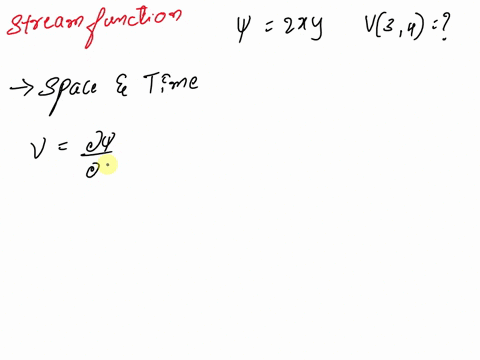 Stream function ψ = 2xy V(3,4) = ?
→ Space & Time
V = ∂ψ/∂